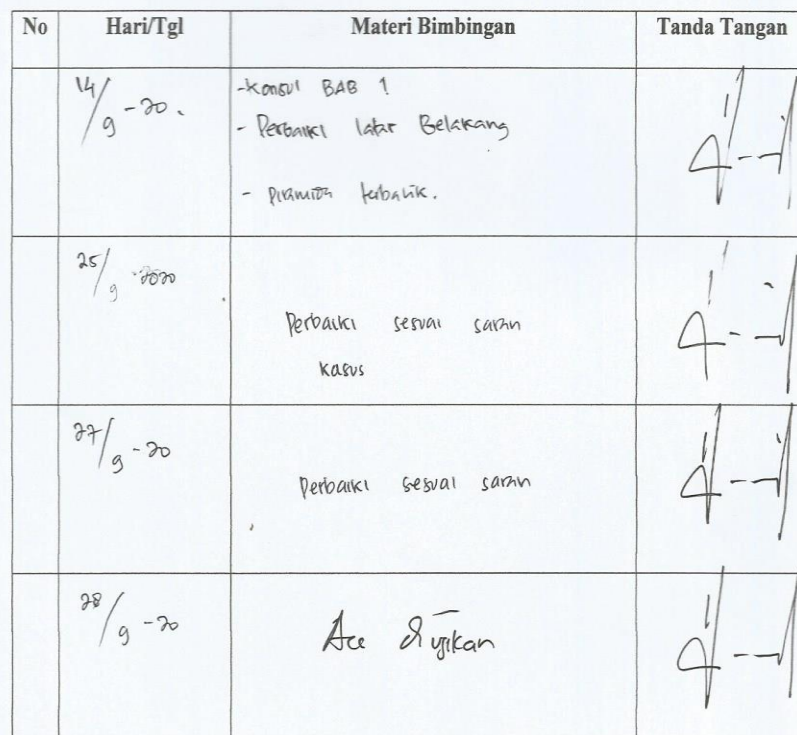 No Hari/Tgl Materi Bimbingan Tanda Tangan
14/9-20. -Konsul BAB 1
- Perbaiki latar Belakang
- Piramida terbalik.
25/9-2020
Perbaiki sesuai saran
kasus
27/9-20
Perbaiki sesuai saran
28/9-20
Acc diujikan